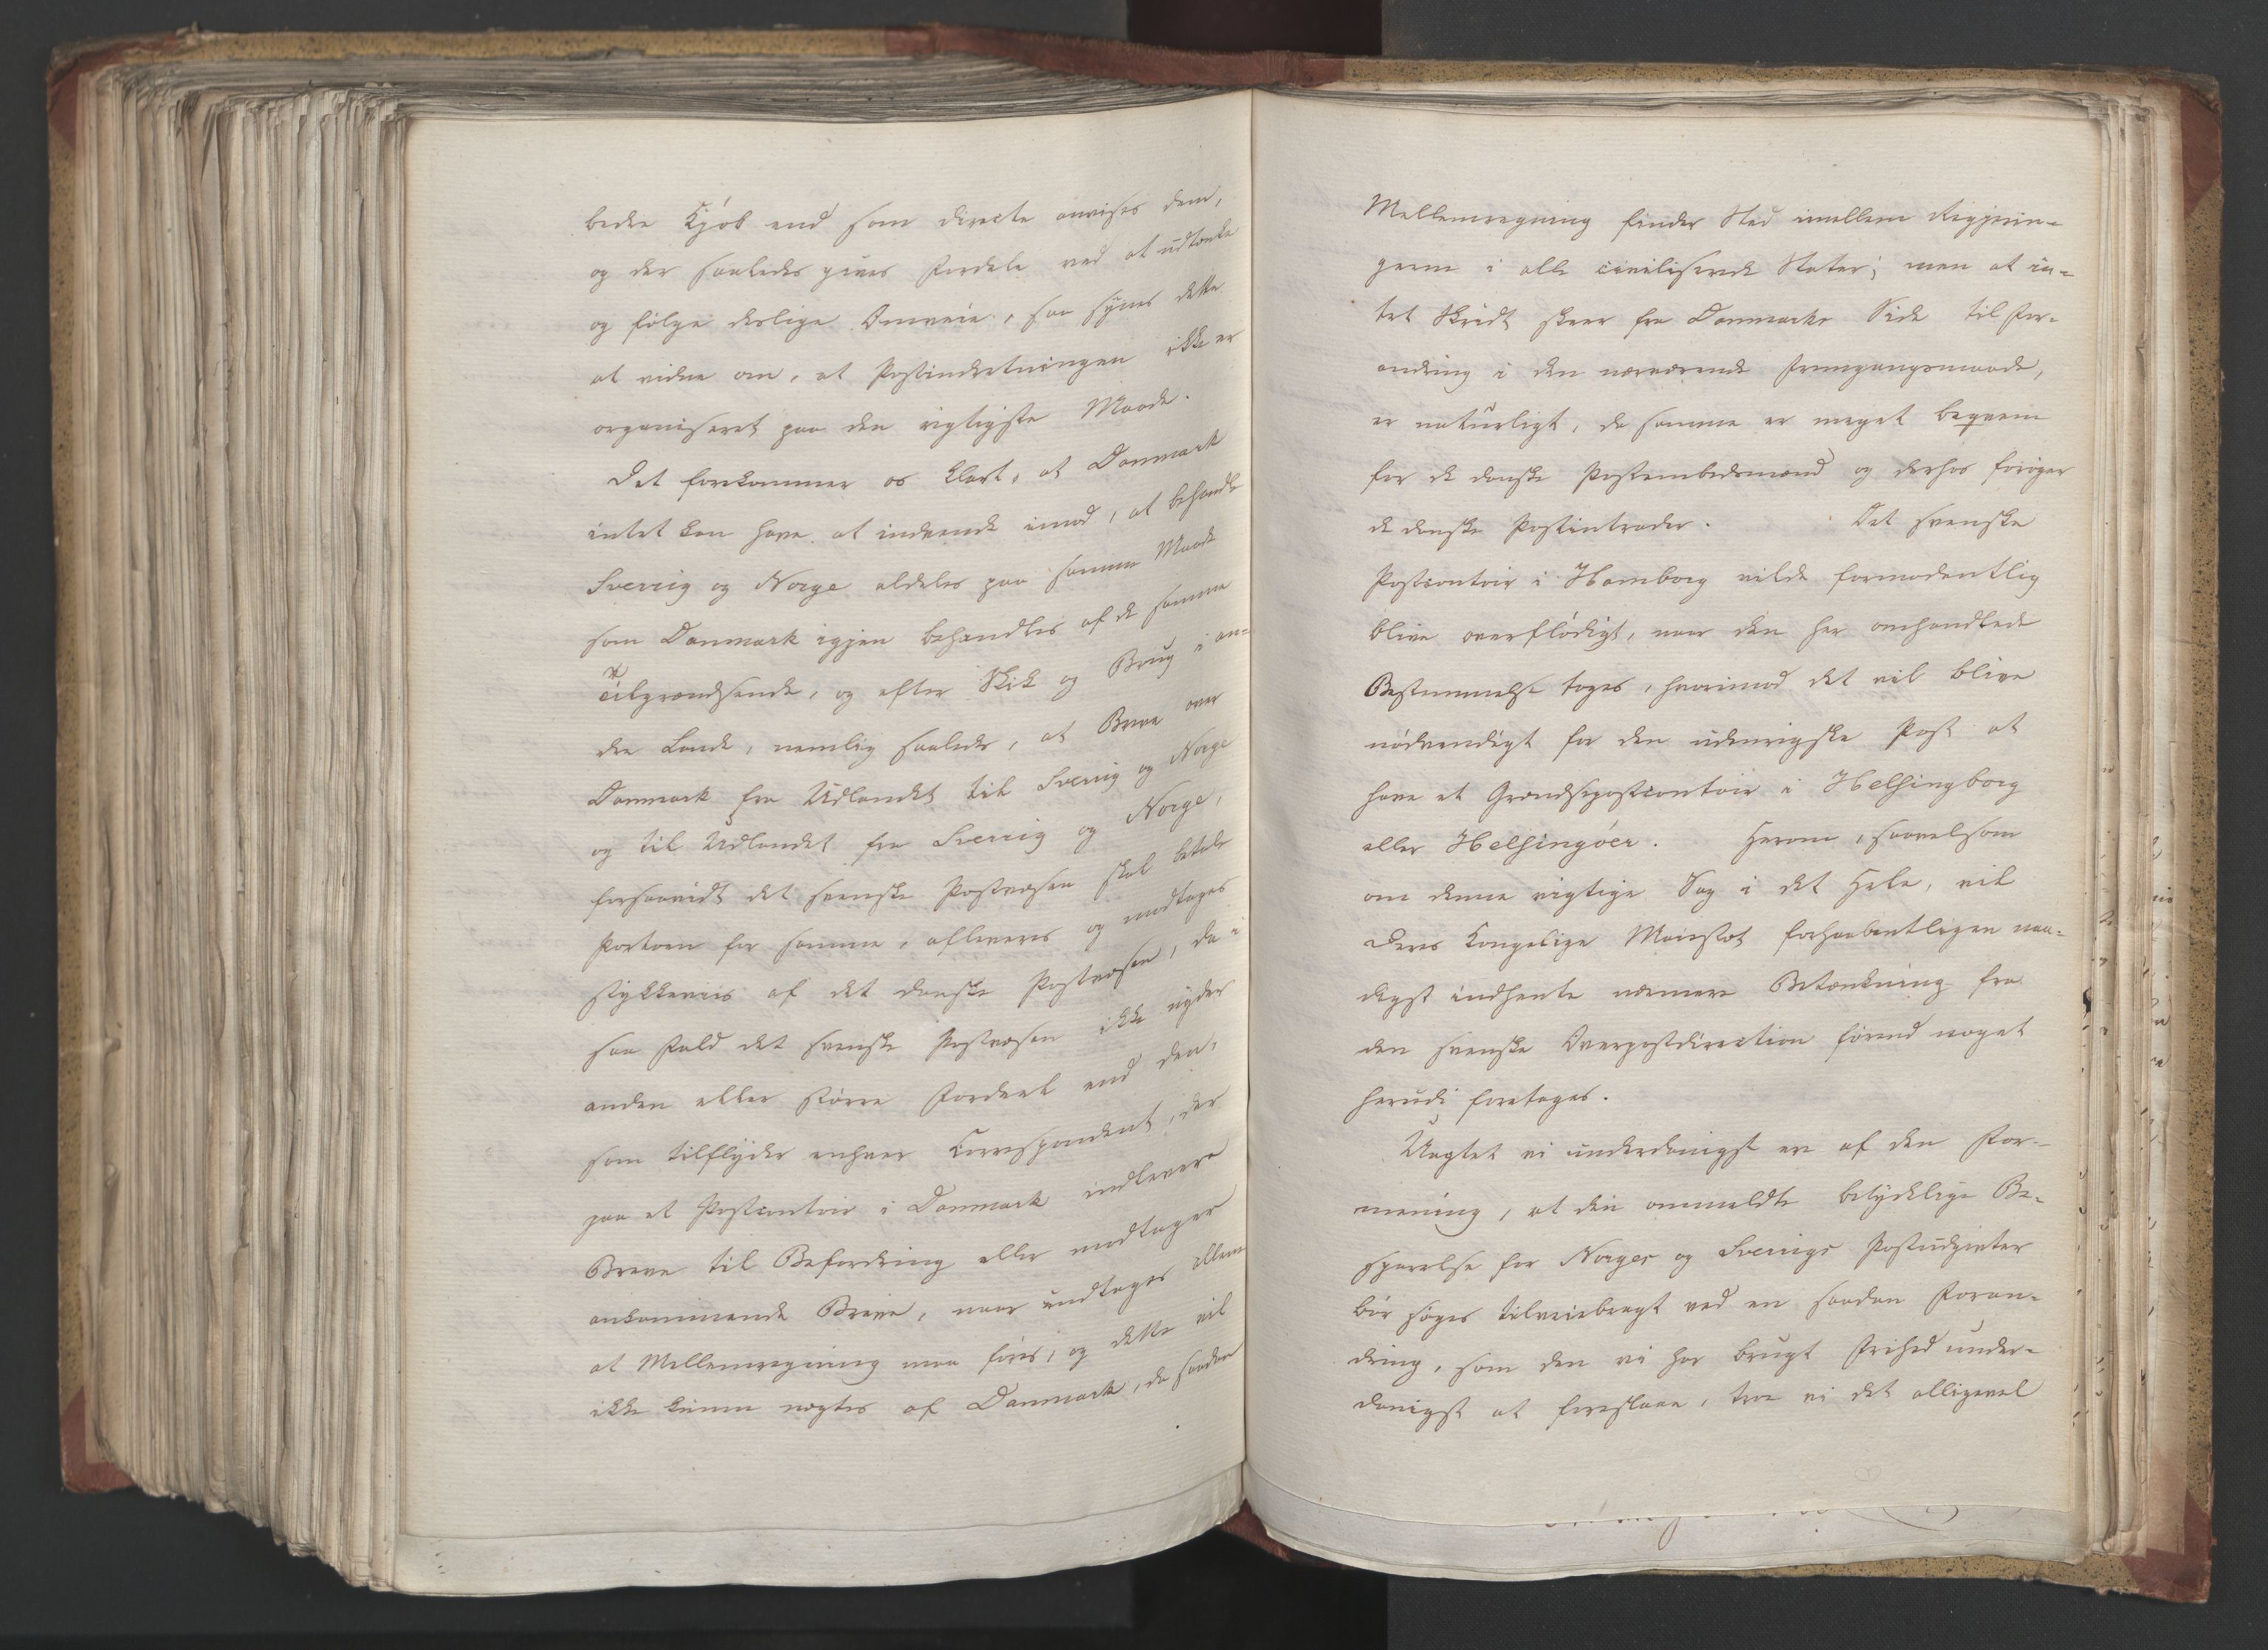 bedre Kjöb end som directe anvises dem,
og der saaledes gives Fordele ved at udtænke
og fölge deslige Omveie, saa synes dette
at vidne om, at Postindretningen ikke er
organiseret paa den rigtigste Maade.
Det forekommer os klart, at Danmark
intet kan have at indvende imod, at behandle
Sverrig og Norge aldeles paa samme Maade
som Danmark igjen behandles af de samme
Tilgrændsende, og efter Skik og Brug i an-
dre Lande, nemlig saaledes, at Breve over
Danmark fra Udlandet til Sverrig og Norge
og til Udlandet fra Sverrig og Norge,
forsaavidt det svenske Postvæsen skal betale
Portoen for samme, afleveres og modtages
stykkeviis af det danske Postvæsen, da i
saa Fald det svenske Postvæsen ikke nyder
anden eller större Fordeel end den,
som tilflyder enhver Correspondent, der
paa et Postcontoir i Danmark indlevere
Breve til Befordring eller modtager
ankommende Breve, naar undtages allene
at Mellemregning maa föres, og dette vil
ikke kunne nægtes af Danmark, da saadan
Mellemregning finder Sted imellem Regjerin-
gerne i alle civiliserede Stater; men at in-
tet Skridt skeer fra Danmarks Side til For-
andring i den nærværende Fremgangsmaade,
er naturligt, da samme er meget beqvem
for de danske Postembedsmænd og derhos foröger
de danske Postintrader. Det svenske
Postcontoir i Hamborg vilde formodentlig
blive overflödigt, naar den her omhandlede
Bestemmelse toges, hvorimod det vil blive
nödvendigt for den udenrigske Post at
have et Grændsepostcontoir i Helsingborg
eller Helsingöer. Herom, saavelsom
om denne vigtige Sag i det Hele, vil
Deres Kongelige Majestæt forhaabentligen naa-
digst indhente nærmere Betænkning fra
den svenske Overpostdirection förend noget
herudi foretages.
Uagtet vi underdanigst ere af den For-
mening, at den ommeldte betydelige Be-
sparelse for Norges og Sverrigs Postudgivter
bör söges tilveiebragt ved en saadan Foran-
dring, som den vi har brugt Frihed under-
danigst at foreslaae, troe vi det alligevel